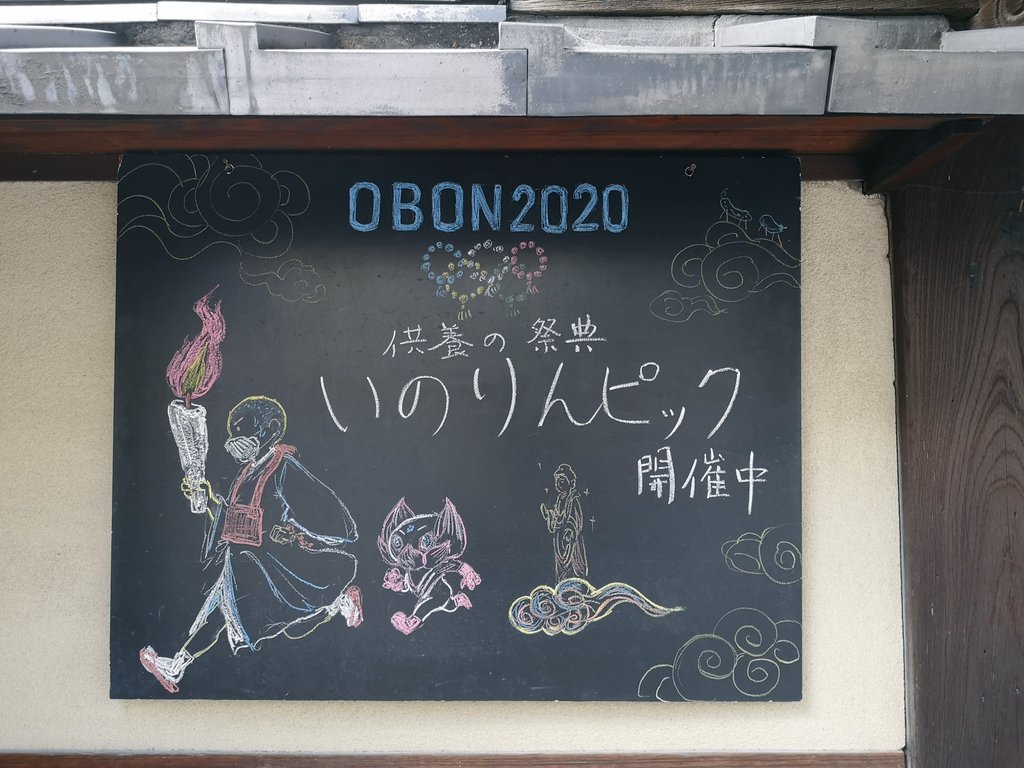 OBON2020
供養の祭典
いのりんピック
開催中